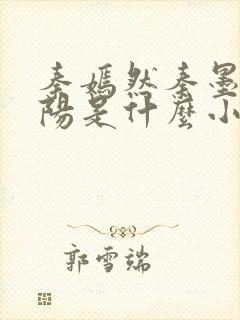 秦嫣然秦墨
陽是什麼小
郭雪端